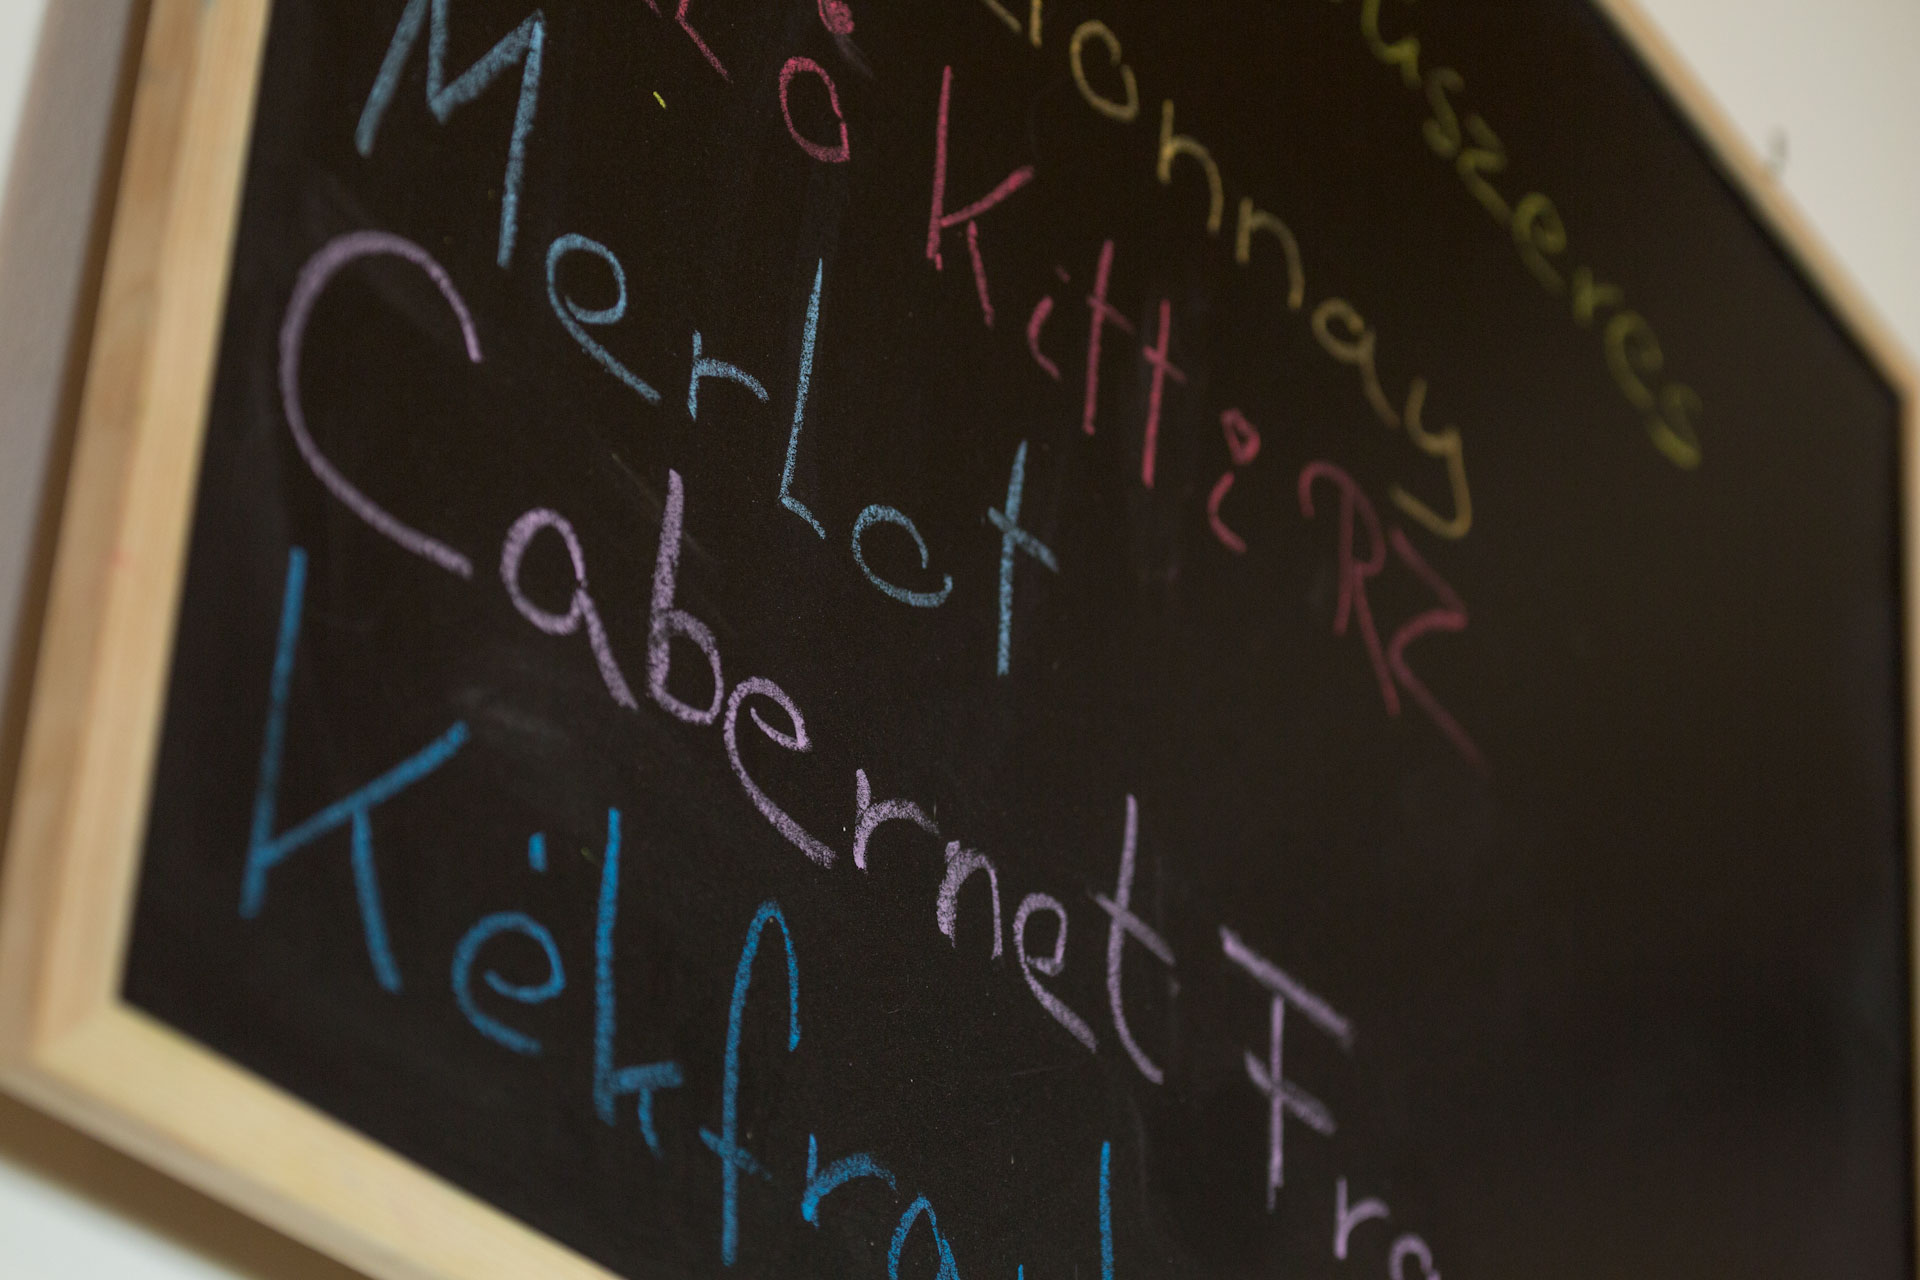 uszeres
onnay
ő Kitti
MerLot
Cabernet Fra
Kékfra